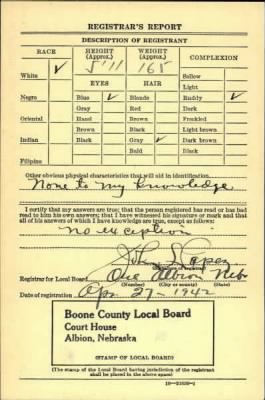 REGISTRAR'S REPORT
DESCRIPTION OF REGISTRANT
RACE HEIGHT (Approx.) WEIGHT (Approx.) COMPLEXION
White ✓ 5'11 165 Sallow
EYES HAIR Light
Negro Blue ✓ Blonde Ruddy ✓
Gray Red Dark
Oriental Hazel Brown Freckled
Brown Black Light brown
Indian Black Gray ✓ Dark brown
Bald Black
Filipino
Other obvious physical characteristics that will aid in identification
None to my knowledge
I certify that my answers are true; that the person registered has read or has had
read to him his own answers; that I have witnessed his signature or mark and that
all of his answers of which I have knowledge are true, except as follows:
no exception
John
Registrar for Local Board One Albion Neb
(Number) (City or county) (State)
Date of registration Apr. 27-1942
Boone County Local Board
Court House
Albion, Nebraska
(STAMP OF LOCAL BOARD)
(The stamp of the Local Board having jurisdiction of the registrant
shall be placed in the above space)